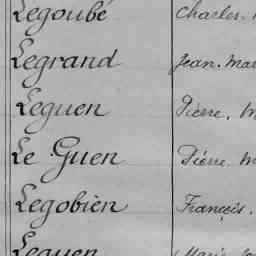 Legoubé Charles.
Legrand Jean. Mar
Leguen Pierre. M
Le Guen Pierre M
Legobien François.
Leguen Marie